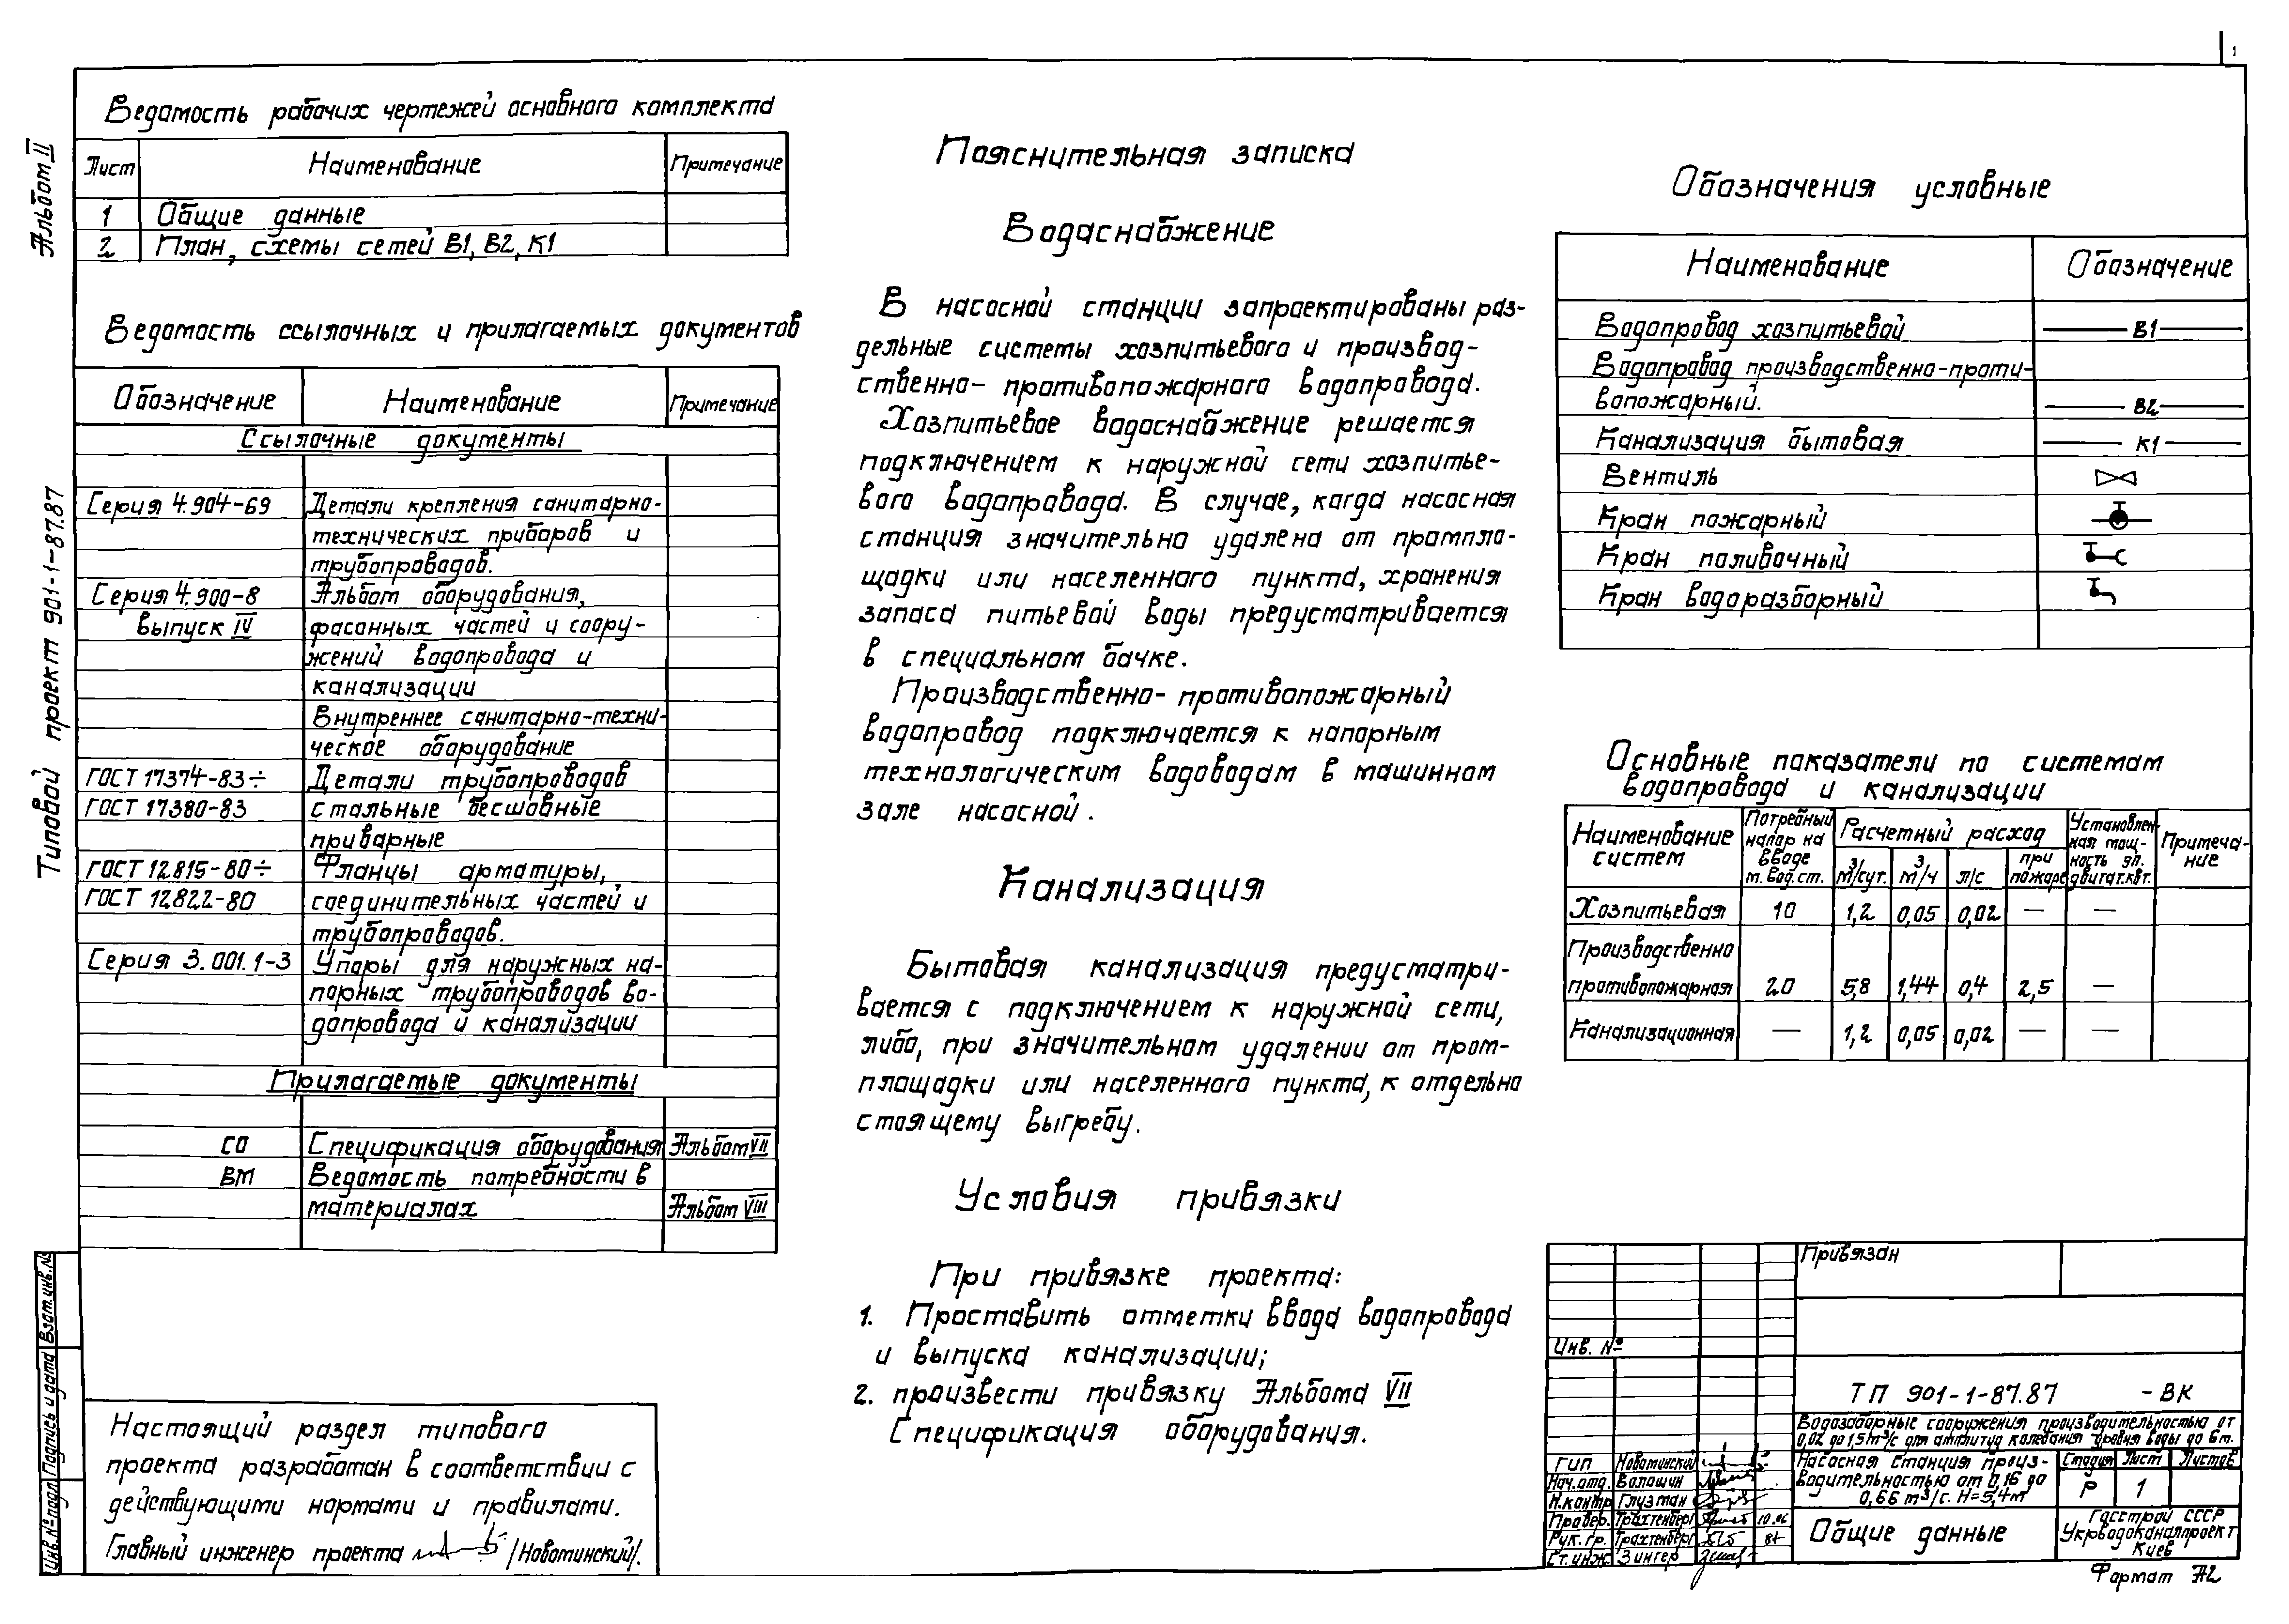 1
Альбом II
Типовой проект 901-1-87.87
Ведомость рабочих чертежей основного комплекта
Лист Наименование Примечание
1 Общие данные
2 План, схемы сетей В1, В2, К1
Ведомость ссылочных и прилагаемых документов
Обозначение Наименование Примечание
Ссылочные документы
Серия 4.904-69 Детали крепления санитарно-
технических приборов и
трубопроводов.
Серия 4.900-8 Альбом оборудования,
выпуск IV фасонных частей и соору-
жений водопровода и
канализации
Внутреннее санитарно-техни-
ческое оборудование
ГОСТ 17374-83÷ Детали трубопроводов
ГОСТ 17380-83 стальные бесшовные
приварные
ГОСТ 12815-80÷ Фланцы арматуры,
ГОСТ 12822-80 соединительных частей и
трубопроводов.
Серия 3.001.1-3 Упоры для наружных на-
порных трубопроводов во-
допровода и канализации
Прилагаемые документы
СО Спецификация оборудования Альбом VII
ВМ Ведомость потребности в
материалах Альбом VIII
Настоящий раздел типового
проекта разработан в соответствии с
действующими нормами и правилами.
Главный инженер проекта /Новоминский/.
Взам.инв.№
Подпись и дата
Инв.№ подл
Пояснительная записка
Водоснабжение
В насосной станции запроектированы раз-
дельные системы хозпитьевого и производ-
ственно- противопожарного водопровода.
Хозпитьевое водоснабжение решается
подключением к наружной сети хозпитье-
вого водопровода. В случае, когда насосная
станция значительно удалена от прompло-
щадки или населенного пункта, хранения
запаса питьевой воды предусматривается
в специальном бачке.
Производственно- противопожарный
водопровод подключается к напорным
технологическим водоводам в машинном
зале насосной.
Канализация
Бытовая канализация предусматри-
вается с подключением к наружной сети,
либо, при значительном удалении от пром-
площадки или населенного пункта, к отдельно
стоящему выгребу.
Условия привязки
При привязке проекта:
1. Проставить отметки ввода водопровода
и выпуска канализации;
2. произвести привязку Альбома VII
Спецификация оборудования.
Обозначения условные
Наименование Обозначение
Водопровод хозпитьевой В1
Водопровод производственно-проти-
вопожарный. В2
Канализация бытовая К1
Вентиль
Кран пожарный
Кран поливочный
Кран водоразборный
Основные показатели по системам
водопровода и канализации
Наименование систем Потребный напор на вводе м.вод.ст. Расчетный расход Установлен- ная мощ- ность эл. двигат.квт. Примеча- ние
м³/сут. м³/ч л/с при пожаре
Хозпитьевая 10 1,2 0,05 0,02 — —
Производственно
противопожарная 20 5,8 1,44 0,4 2,5 —
Канализационная — 1,2 0,05 0,02 — —
Привязан
Инв. №
ТП 901-1-87.87 -ВК
Водозаборные сооружения производительностью от
0,02 до 1,5 м³/с для амплитуд колебания уровня воды до 6 м.
ГИП Новоминский
Нач.отд. Волошин
Н.контр Глузман
Провер. Трахтенберг 10.86
Рук.гр. Трахтенберг 87
Ст.инж. Зингер
Насосная станция произ-
водительностью от 0,16 до
0,66 м³/с. Н=5,4м
Стадия Лист Листов
Р 1
Общие данные
Госстрой СССР
Укрводоканалпроект
Киев
Формат А2